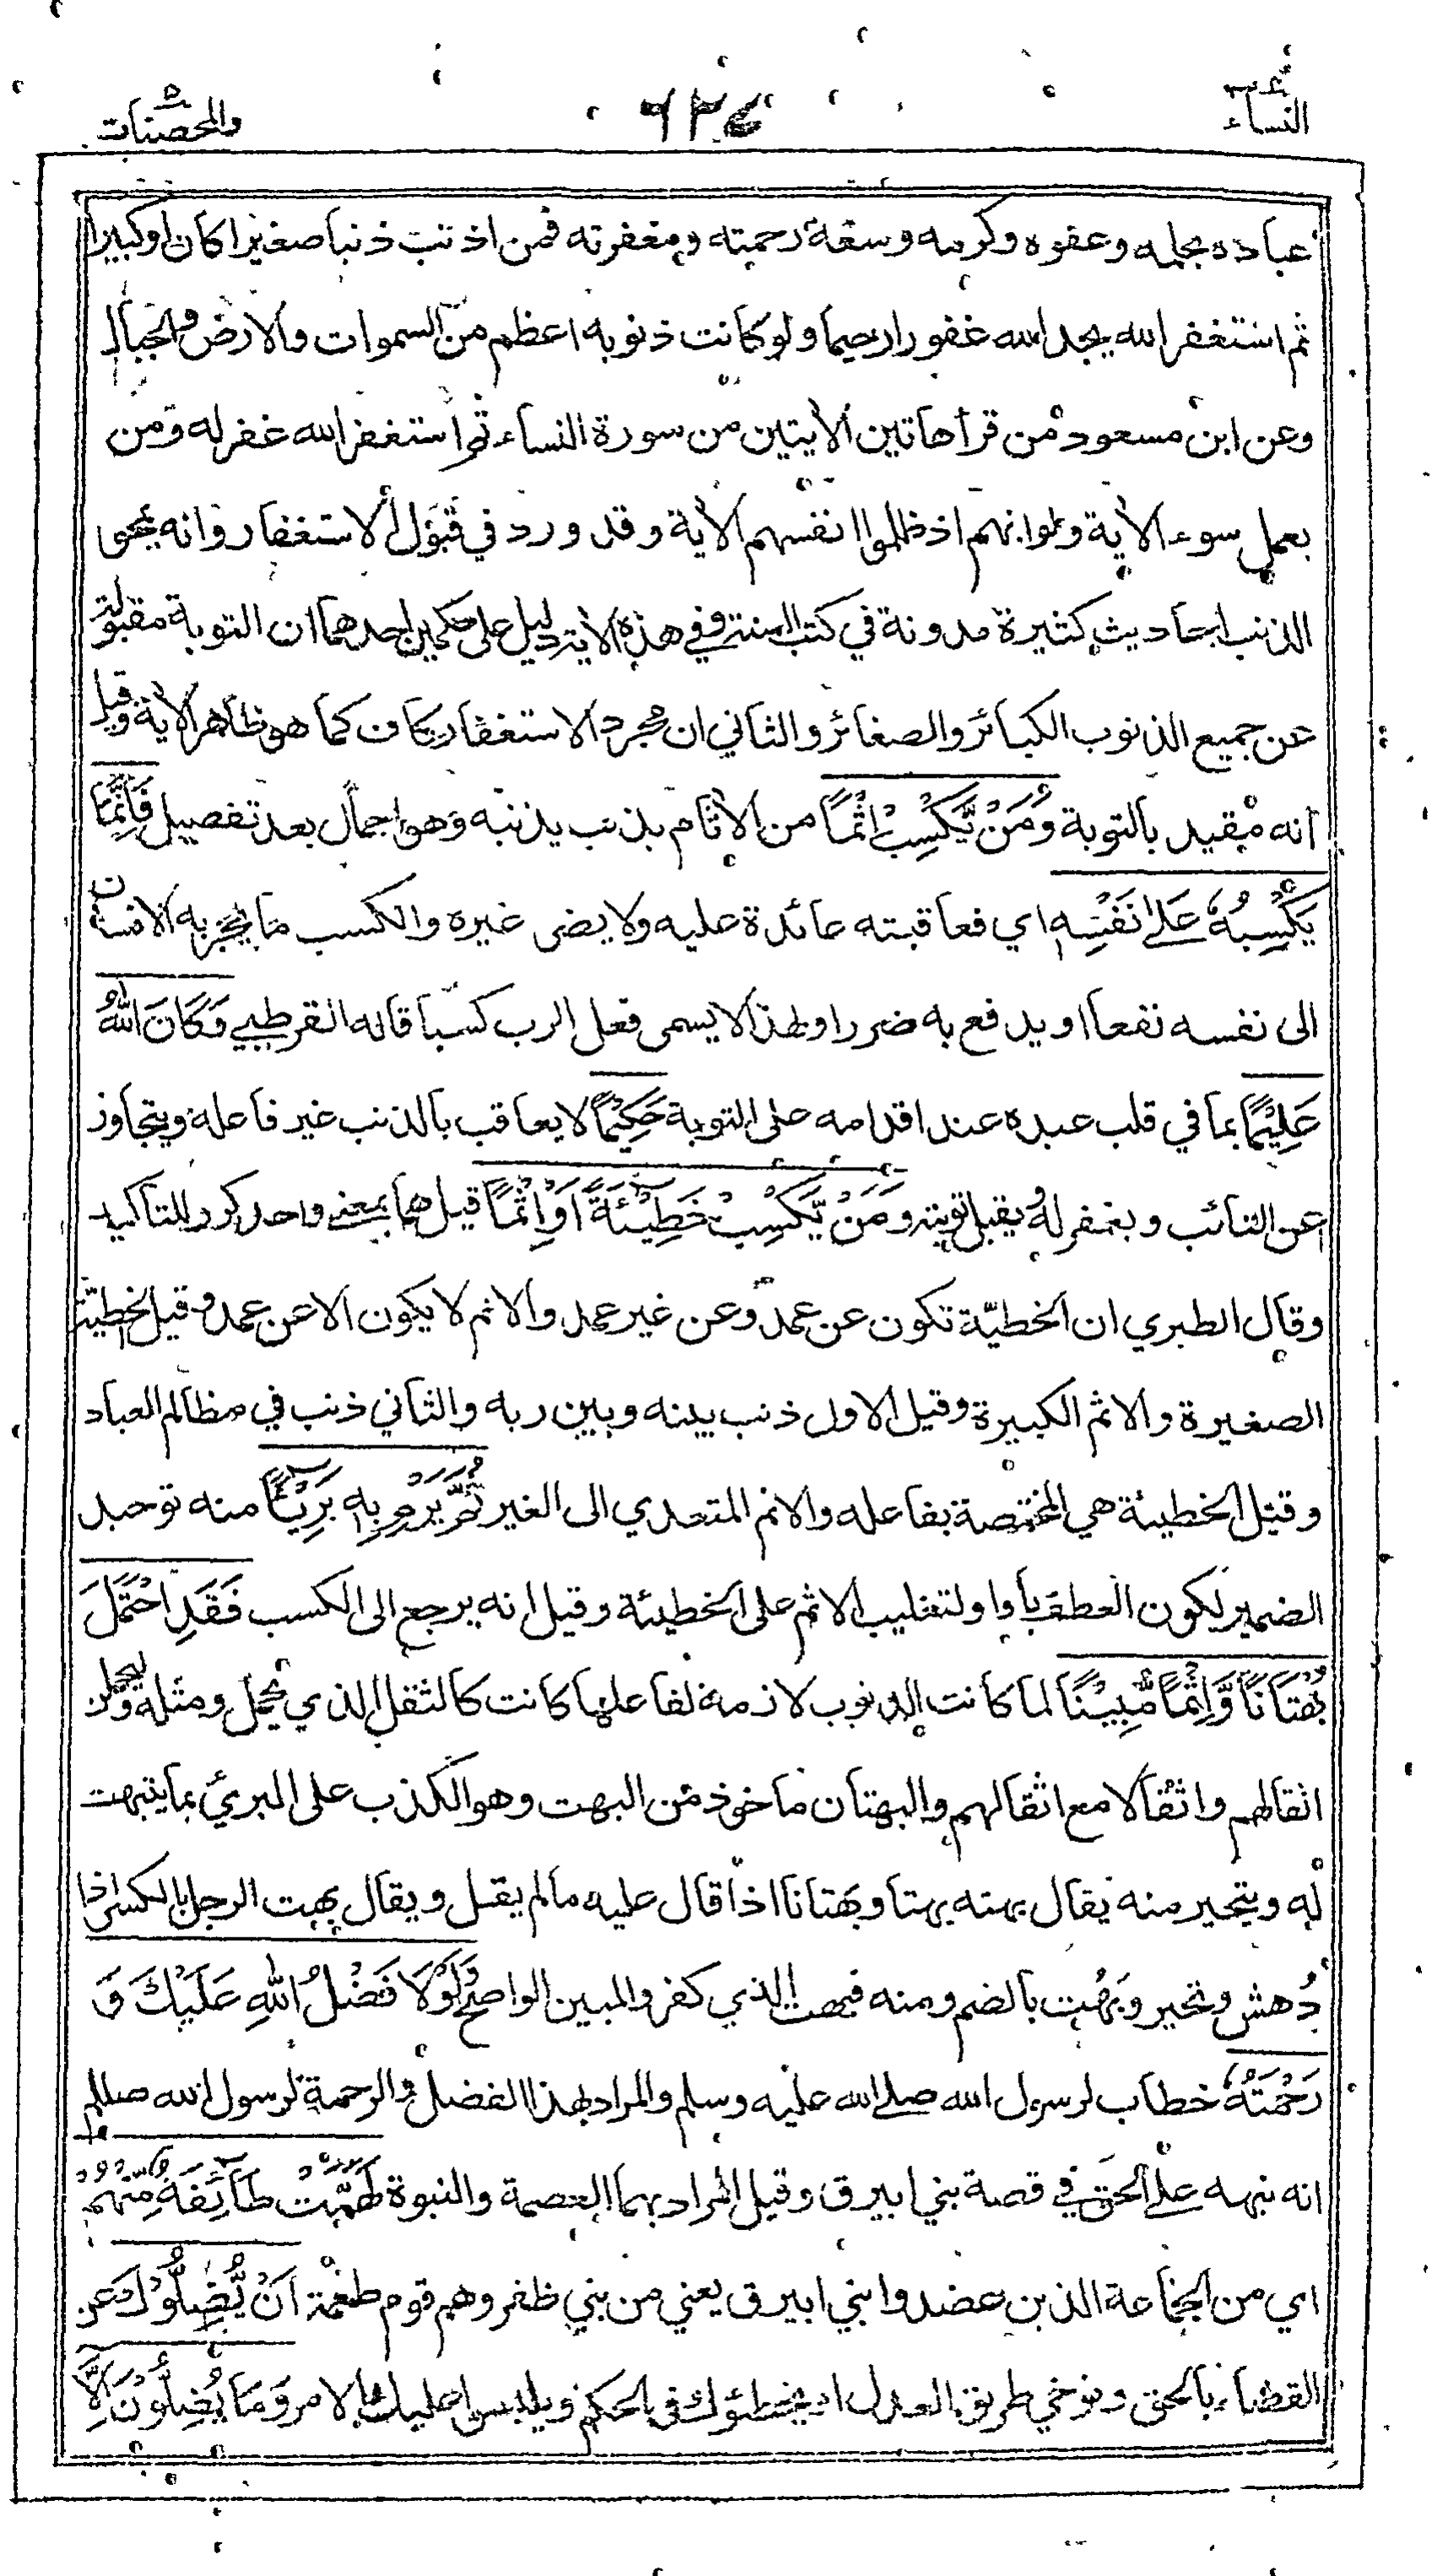 النساء
٦٢٤
والمحصنات
عباده بحلمه وعفوه وكرمه وسعة رحمته ومغفرته فمن اذنب ذنبا صغيرا كان او كبيرا
ثم استغفر الله يجد الله غفورا رحيما ولو كانت ذنوبه اعظم من السموات والارض والجبال
وعن ابن مسعود من قرأ هاتين الايتين من سورة النساء ثم استغفر الله غفر له ومن
يعمل سوء الاية ولو انهم اذ ظلموا انفسهم الاية وقد ورد في قبول الاستغفار وانه يمحق
الذنب احاديث كثيرة مدونة في كتب السنة وفي هذه الاية دليل على حكمين احدهما ان التوبة مقبولة
عن جميع الذنوب الكبائر والصغائر والثاني ان مجرد الاستغفار كاف كما هو ظاهر الاية وقيل
انه مقيد بالتوبة وَمَنْ يَّكْسِبْ اِثْمًا من الاثام بذنب يذنبه وهو اجمال بعد تفصيل فَاِنَّمَا
يَكْسِبُهٗ عَلٰى نَفْسِهٖ اي فعاقبته عائدة عليه ولا يضر غيره والكسب ما يجر به الانسان
الى نفسه نفعا او يدفع به ضررا ولهذا لا يسمى فعل الرب كسبا قاله القرطبي وَكَانَ اللّٰهُ
عَلِيْمًا بما في قلب عبده عند اقدامه على التوبة حَكِيْمًا لا يعاقب بالذنب غير فاعله ويتجاوز
عن التائب ويغفر له ويقبل توبته وَمَنْ يَّكْسِبْ خَطِيْٓئَةً اَوْ اِثْمًا قيل هما بمعنى واحد كرر للتأكيد
وقال الطبري ان الخطيّة تكون عن عمد وعن غير عمد والاثم لا يكون الا عن عمد وقيل الخطيّة
الصغيرة والاثم الكبيرة وقيل الاول ذنب بينه وبين ربه والثاني ذنب في مظالم العباد
وقيل الخطيئة هي المختصة بفاعله والاثم المتعدي الى الغير ثُمَّ يَرْمِ بِهٖ بَرِيْٓئًا منه توحيد
الضمير لكون العطف بأو او لتغليب الاثم على الخطيئة وقيل انه يرجع الى الكسب فَقَدِ احْتَمَلَ
بُهْتَانًا وَّاِثْمًا مُّبِيْنًا لما كانت الذنوب لازمة لفاعلها كانت كالثقل الذي يحمل ومثله وليحملن
اثقالهم واثقالا مع اثقالهم والبهتان ماخوذ من البهت وهو الكذب على البريّ بما يتبهت
له ويتحير منه يقال بهته بهتا وبهتانا اذا قال عليه ما لم يقل ويقال بهت الرجل بالكسر اذا
دُهش وتحير وبَهُت بالضم ومنه فبهت الذي كفر والمبين الواضح وَلَوْلَا فَضْلُ اللّٰهِ عَلَيْكَ وَ
رَحْمَتُهٗ خطاب لرسول الله صلى الله عليه وسلم والمراد بهذا الفضل والرحمة لرسول الله صللم
انه نبهه على الحق في قصة بني ابيرق وقيل المراد بهما العصمة والنبوة لَهَمَّتْ طَآئِفَةٌ مِّنْهُمْ
اي من الجماعة الذين عضدوا بني ابيرق يعني من بني ظفر وهم قوم طعمة اَنْ يُّضِلُّوْكَ عن
القضاء بالحق وتوخي طريق العدل او يخطئوك في الحكم ويلبسوا عليك الامر وَمَا يُضِلُّوْنَ اِلَّا